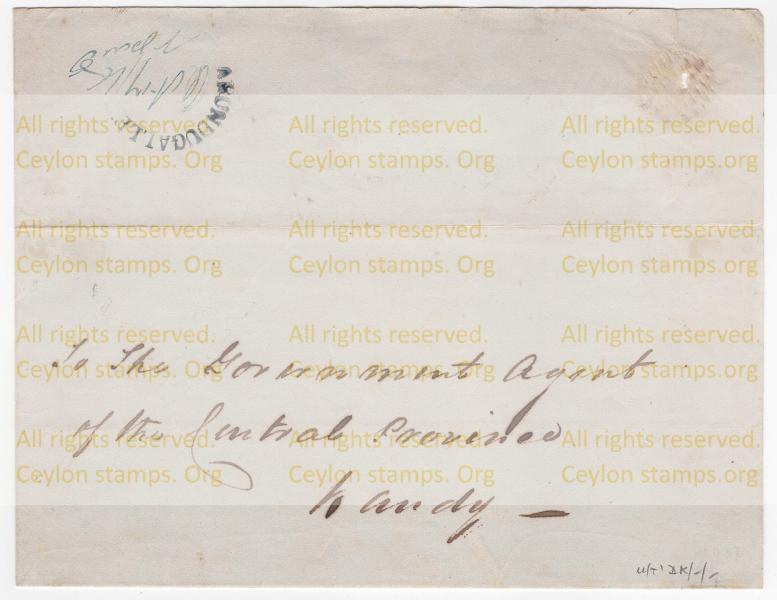 KURUNDUGALLE
All rights reserved. All rights reserved. All rights reserved.
Ceylon stamps. Org Ceylon stamps. Org Ceylon stamps. Org
All rights reserved. All rights reserved. All rights reserved.
Ceylon stamps. Org Ceylon stamps. Org Ceylon stamps. Org
All rights reserved. All rights reserved. All rights reserved.
To The Government Agent
Ceylon stamps. Org Ceylon stamps. Org Ceylon stamps. Org
of the Central Province
All rights reserved. All rights reserved. All rights reserved.
Ceylon stamps. Org Ceylon stamps. Org Ceylon stamps. Org
Kandy —